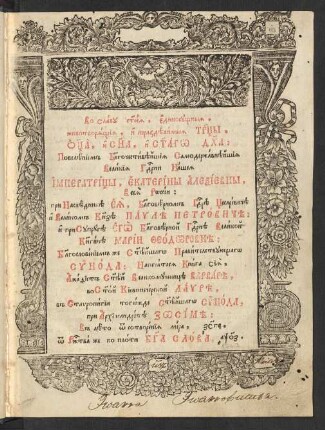 Во славу с҃тыѧ, є҆диносꙋщныѧ,
животворѧщїѧ, и҆ нераздѣлимыѧ Трⷪ҇цы,
Ѻ҆ц҃а, и҆ Сн҃а, и҆ Ст҃агѡ Дх҃а:
Повелѣнїемъ Бл҃гочестивѣйшїѧ Самодержавнѣйшїѧ
Великїѧ Гдⷭ҇рни Нашеѧ
ІМПЕРАТРИЦЫ, ЄКАТЕРИНЫ АЛЕѮІЕВНЫ,
Всеѧ Рѡссїи:
при Наслѣдникѣ Єѧ, Бл҃говѣрномъ Гдⷭ҇рѣ Цесаревичѣ
и҆ Великомъ Кнѧзѣ ПАѴЛѢ ПЕТРОВИЧѢ:
и҆ при Сꙋпрꙋгѣ ЄГѠ̀ Бл҃говѣрной Гдⷭ҇рнѣ Великой
Кнѧгинѣ МАРІИ ѲЕОДѠРОВНѢ:
Бл҃гословенїемъ же Ст҃ѣйшагѡ Правительствꙋющагѡ
СѴНОДА: Напечатасѧ Книга сїѧ.
ЛАѴРѢ,
въ Стаѵропигїи тогѡжде Ст҃ѣйшагѡ СѴНОДА,
при Архїмандрїтѣ ЗѠСІМѢ:
Въ лѣто ѿ созданїѧ мїра,
ѿ Ржⷭ҇тва же по плоти БГ҃А СЛОВА,